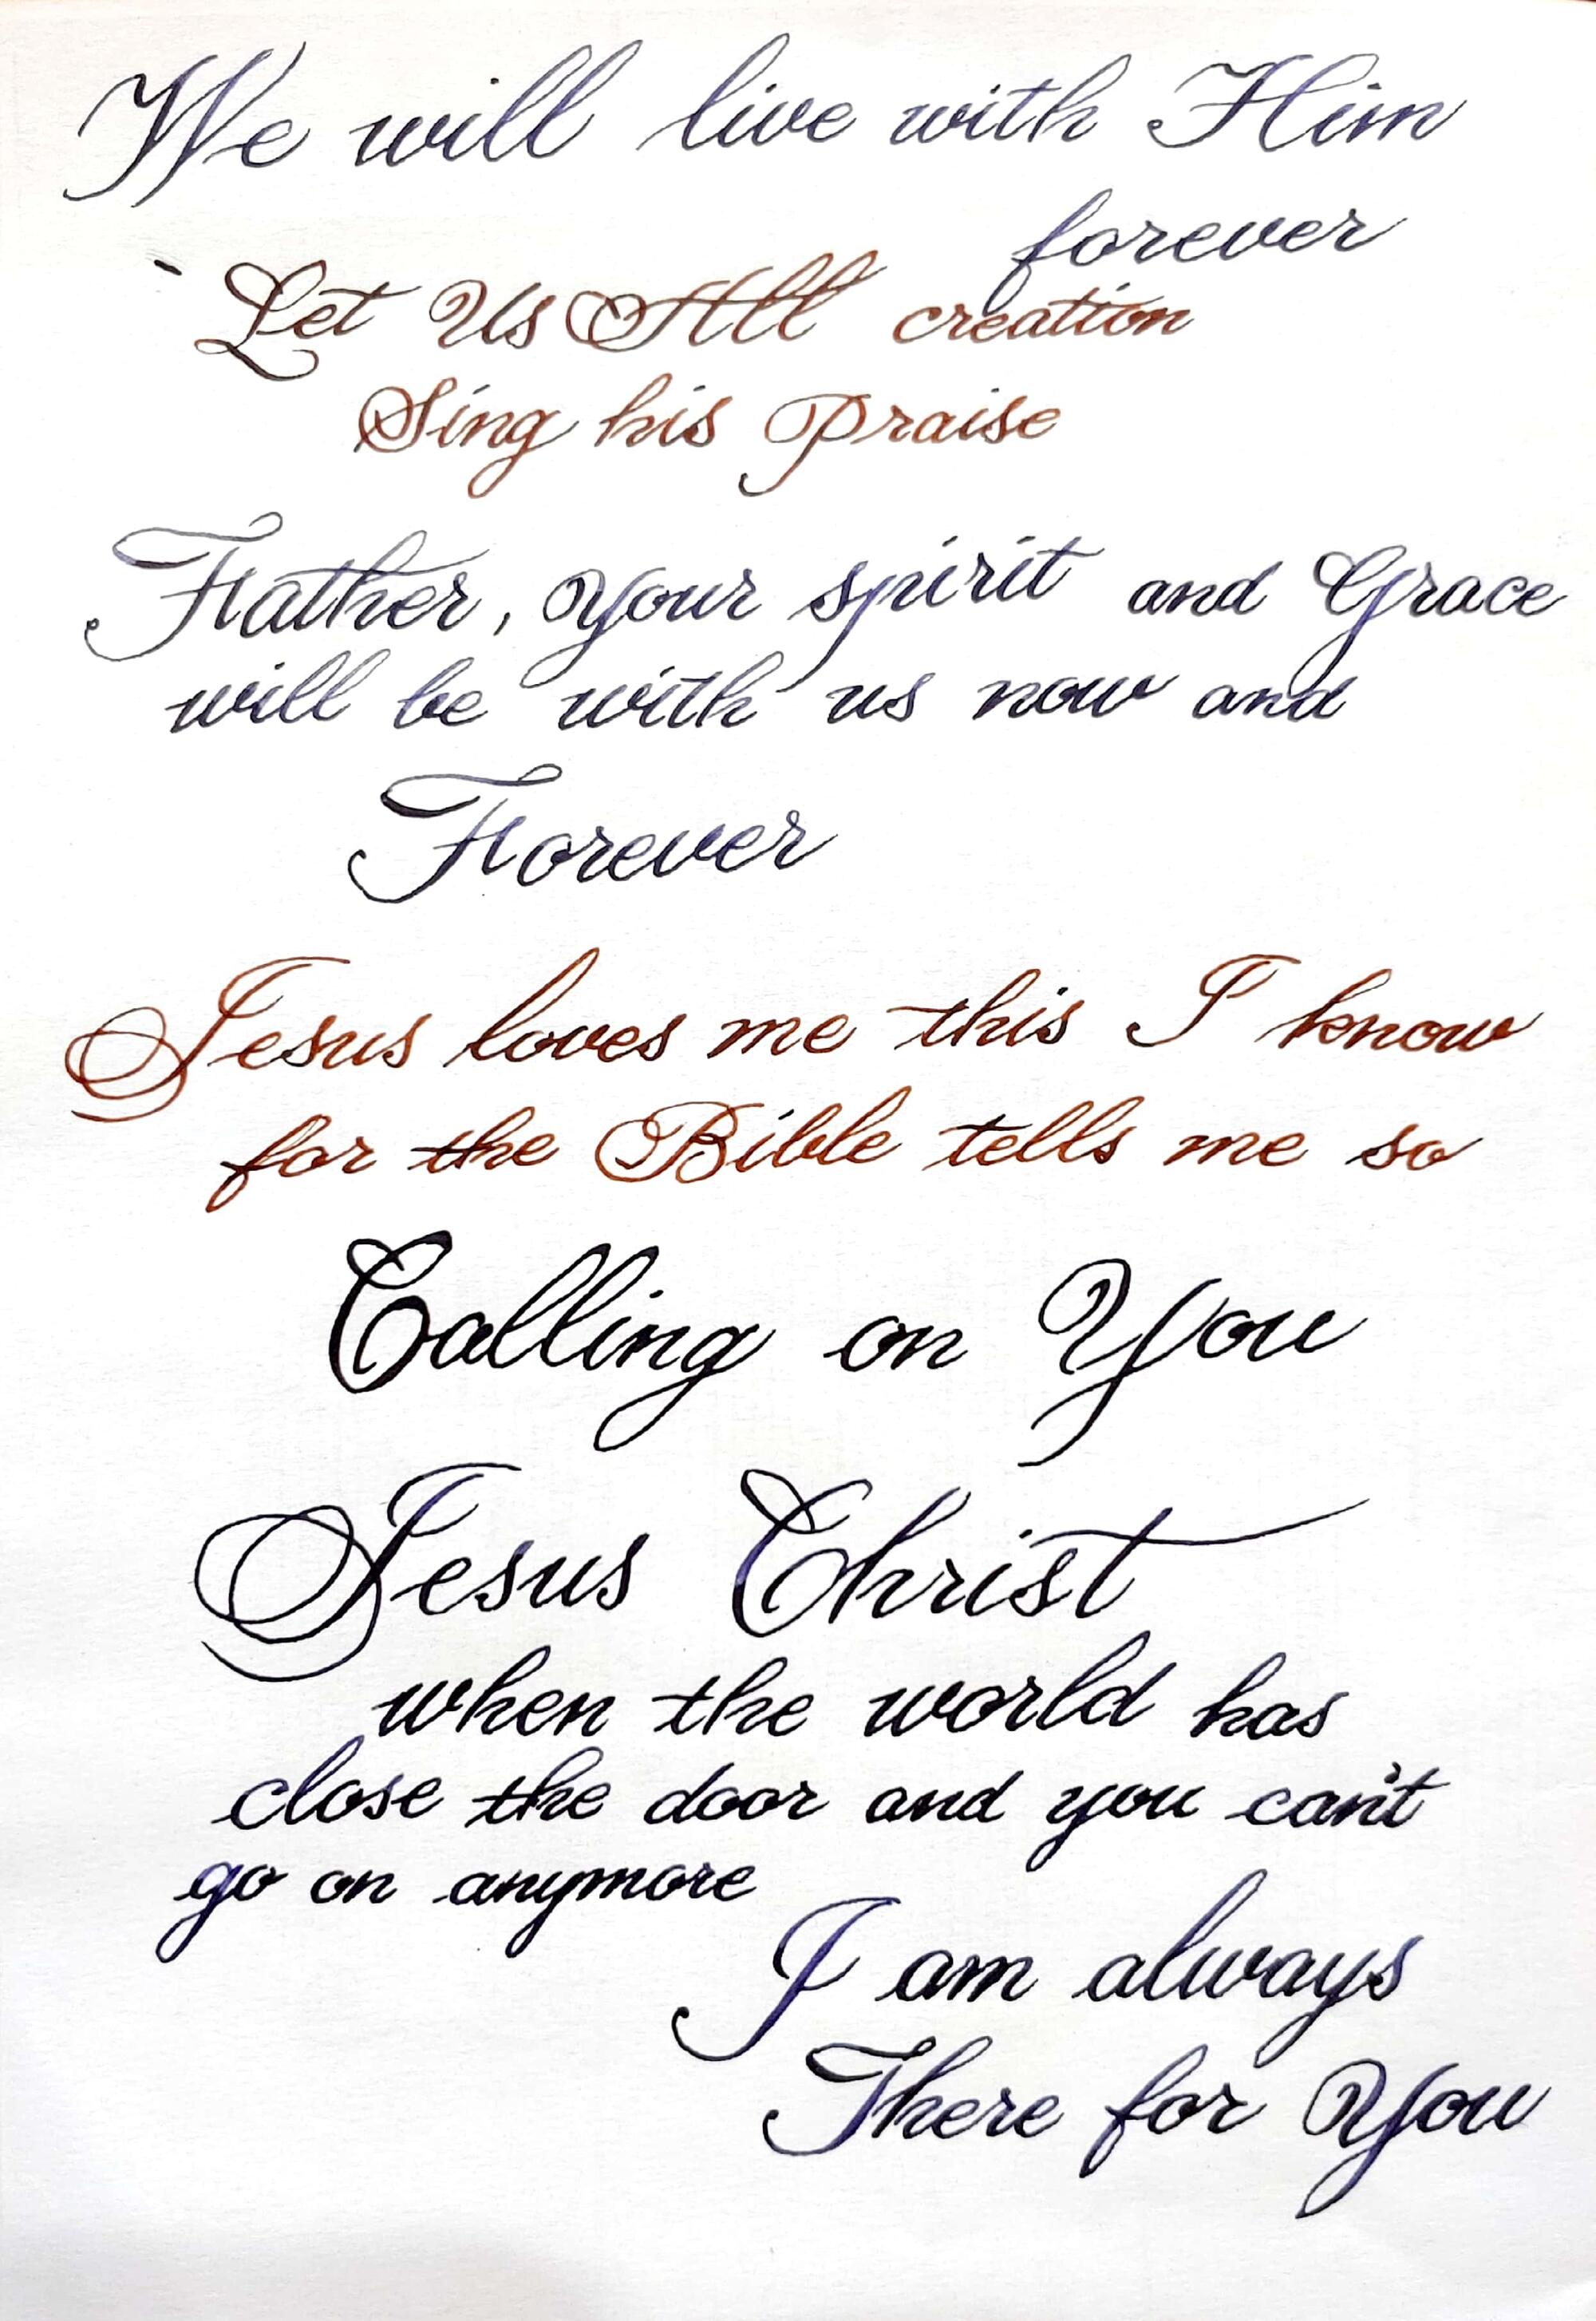 We will live with Him
forever
Let Us All creation
Sing his Praise
Father, your spirit and Grace
will be with us now and
Forever
Jesus loves me this I know
for the Bible tells me so
Calling on You
Jesus Christ
when the world has
close the door and you can't
go on anymore
I am always
There for You